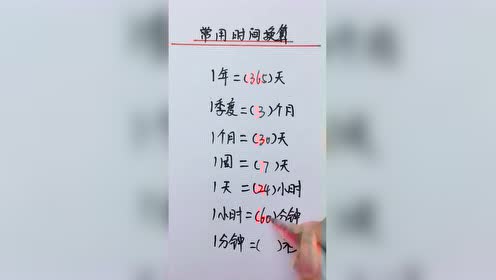 常用时间换算
1年=(365)天
1季度=(3)个月
1个月=(30)天
1周=(7)天
1天=(24)小时
1小时=(60)分钟
1分钟=( )